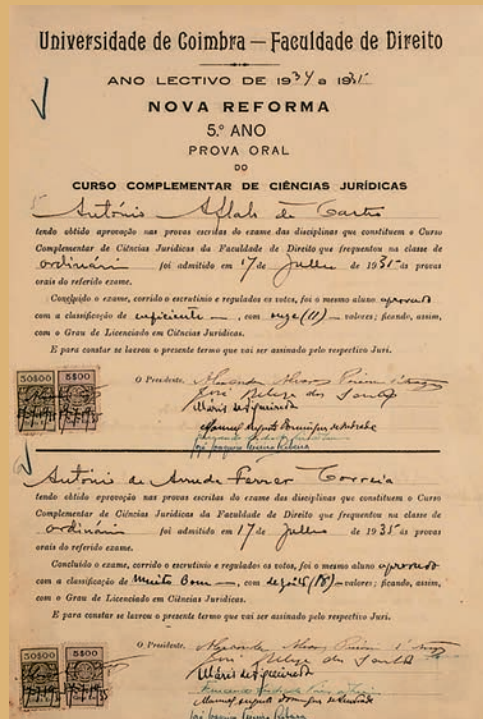 Universidade de Coimbra — Faculdade de Direito
ANO LECTIVO DE 1934 a 1935
NOVA REFORMA
5.º ANO
PROVA ORAL
DO
CURSO COMPLEMENTAR DE CIÊNCIAS JURÍDICAS
António Aflalo de Castro
tendo obtido aprovação nas provas escritas do exame das disciplinas que constituem o Curso
Complementar de Ciências Jurídicas da Faculdade de Direito que frequentou na classe de
ordinário foi admitido em 17 de Julho de 1935 às provas
orais do referido exame.
Concluído o exame, corrido o escrutínio e regulados os votos, foi o mesmo aluno aprovado
com a classificação de suficiente —, com onze (11) — valores; ficando, assim,
com o Grau de Licenciado em Ciências Jurídicas.
E para constar se lavrou o presente termo que vai ser assinado pelo respectivo Juri.
O Presidente,
José Beleza dos Santos
Mário de Figueiredo
Manuel Augusto Domingues de Andrade
José Joaquim Teixeira Ribeiro
50$00 5$00
António de Arruda Ferrer Correia
tendo obtido aprovação nas provas escritas do exame das disciplinas que constituem o Curso
Complementar de Ciências Jurídicas da Faculdade de Direito que frequentou na classe de
ordinário foi admitido em 17 de Julho de 1935 às provas
orais do referido exame.
Concluído o exame, corrido o escrutínio e regulados os votos, foi o mesmo aluno aprovado
com a classificação de Muito Bom —, com dezoito (18) — valores; ficando, assim,
com o Grau de Licenciado em Ciências Jurídicas.
E para constar se lavrou o presente termo que vai ser assinado pelo respectivo Juri.
O Presidente,
José Beleza dos Santos
Mário de Figueiredo
Manuel Augusto Domingues de Andrade
José Joaquim Teixeira Ribeiro
50$00 5$00